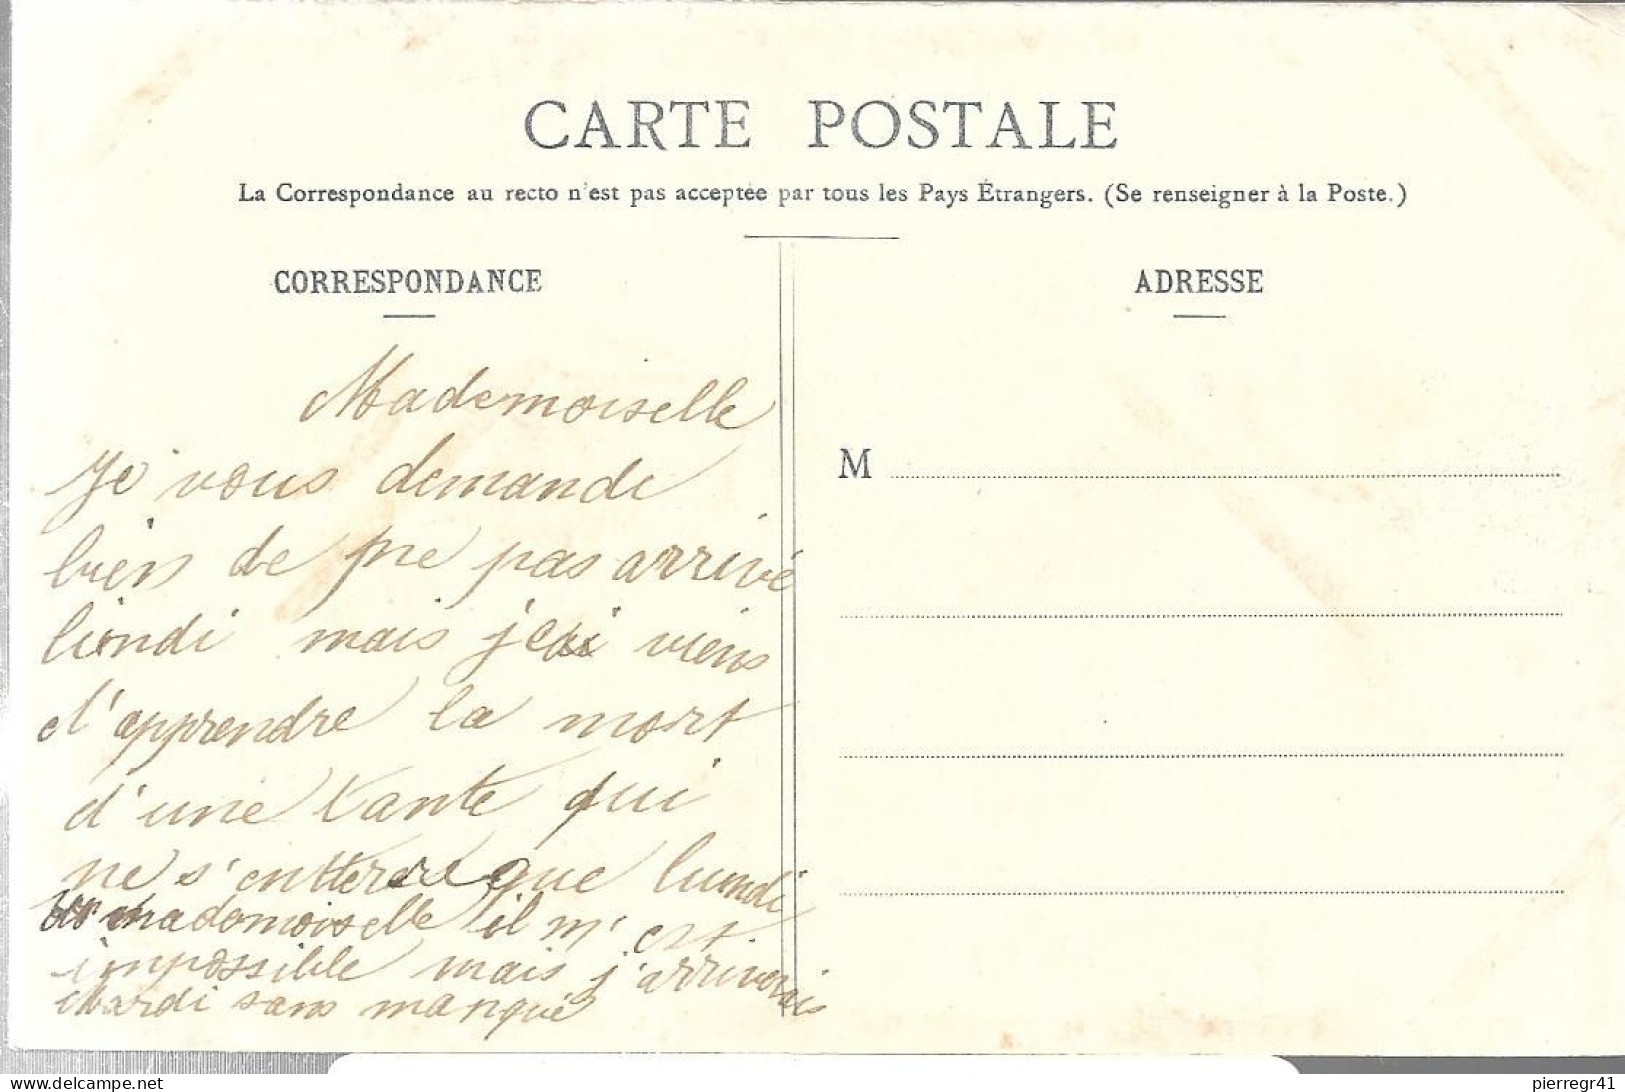 CARTE POSTALE
La Correspondance au recto n'est pas acceptée par tous les Pays Étrangers. (Se renseigner à la Poste.)
CORRESPONDANCE
ADRESSE
M
Mademoiselle
Je vous demande
bien de ne pas arrivé
liundi mais je viens
d'apprendre la mort
d'une tante qui
ne s'entterere que lundi
mademoiselle il m'est
impossible mais j'arriverais
Mardi sans manqué
pierregr41